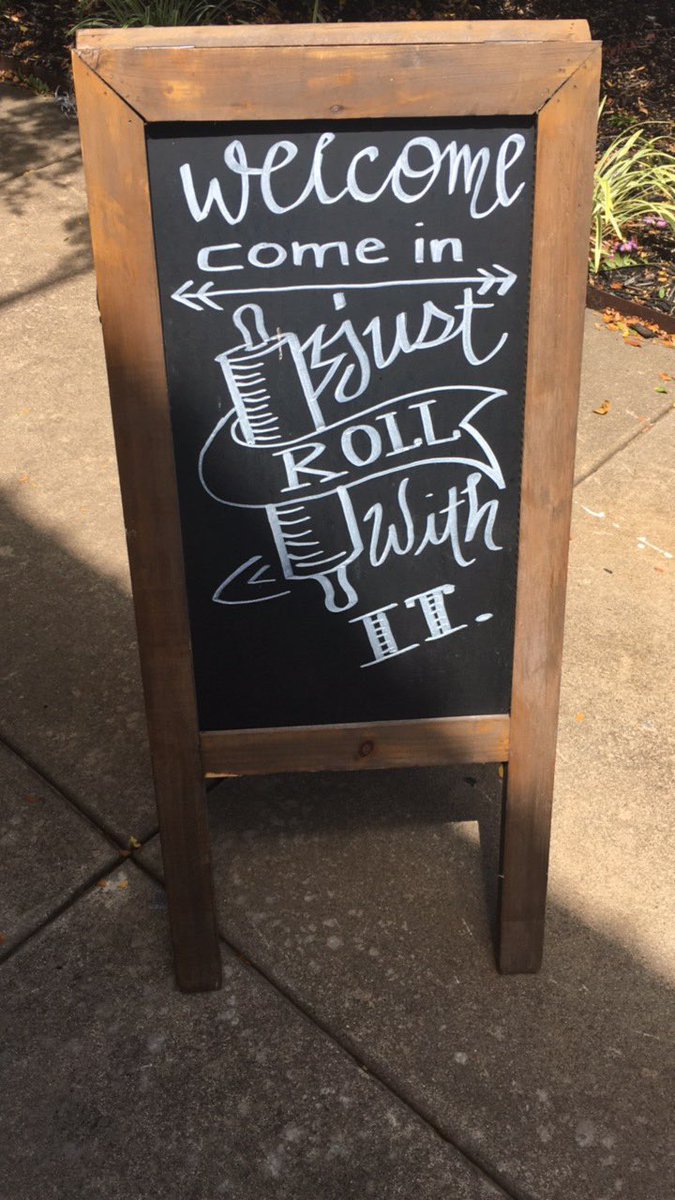 welcome
come in
just
ROLL
with
IT.